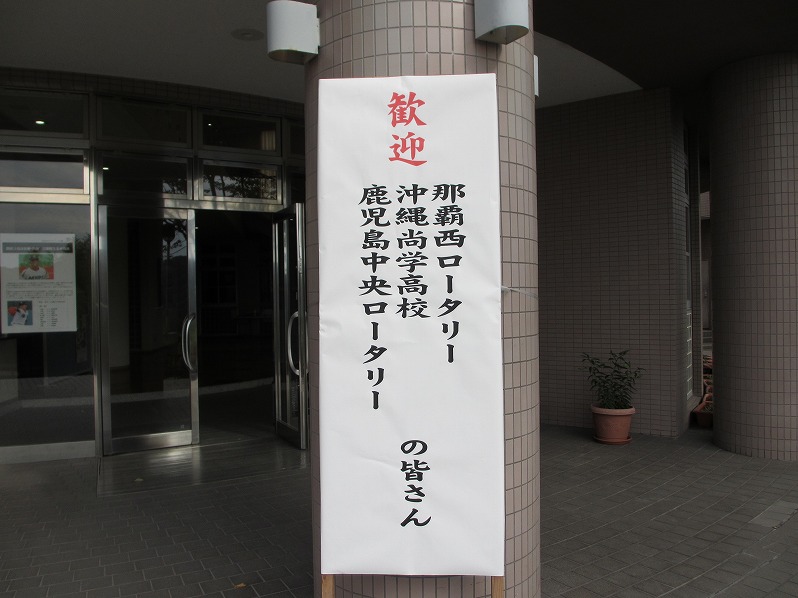 歓迎
那覇西ロータリー
沖縄尚学高校
鹿児島中央ロータリー
の皆さん